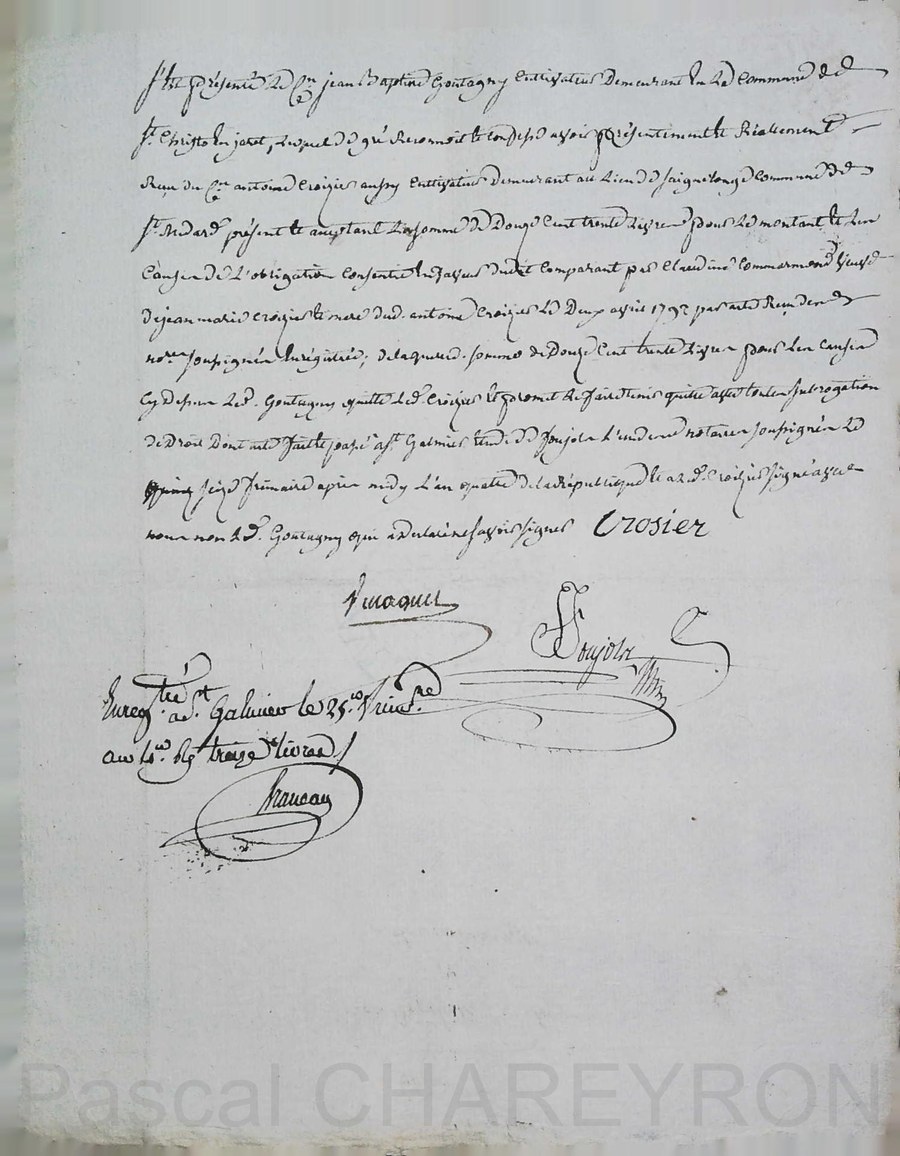 S'est présenté Le Cen jean Baptiste Goutagny Cultivateur Demeurant en La Commune de
St. Christo en jaret, Lequel de gré Reconnoit et Confesse avoir présentement et Réellement
Reçu du Cen antoine Croizier aussy Cultivateur demeurant au Lieu de Commune de
St. Medard présent et acceptant La somme de Douze Cent trente Livres pour Le montant et Les
Causes de L'obligation Consentie en faveur dudit Comparant par Claudine Commarmond veuve
de jean marie Croizier et mere dud. antoine Croizier Le Deux avril 1792 par acte Reçu des
nores soussignés Enrégistrée; de laquelle somme de Douze Cent trente Livres pour Les Causes
Cy dessus Led. Goutagny quitte Led. Croizier et promet Le faire tenir quitte avec toutes subrogation
de Droit Dont acte fait et passé a St. Galmier Etude de Soujols L'un des notaires soussignés Le
seize frimaire après midy L'an quatre de la République et a Led. Croizier signé avec
nous non Led. Goutagny qui a Declaré ne savoir signer Crosier
Soujols
Enregtré a St. Galmier le 25. frimre
au 4. treize livres